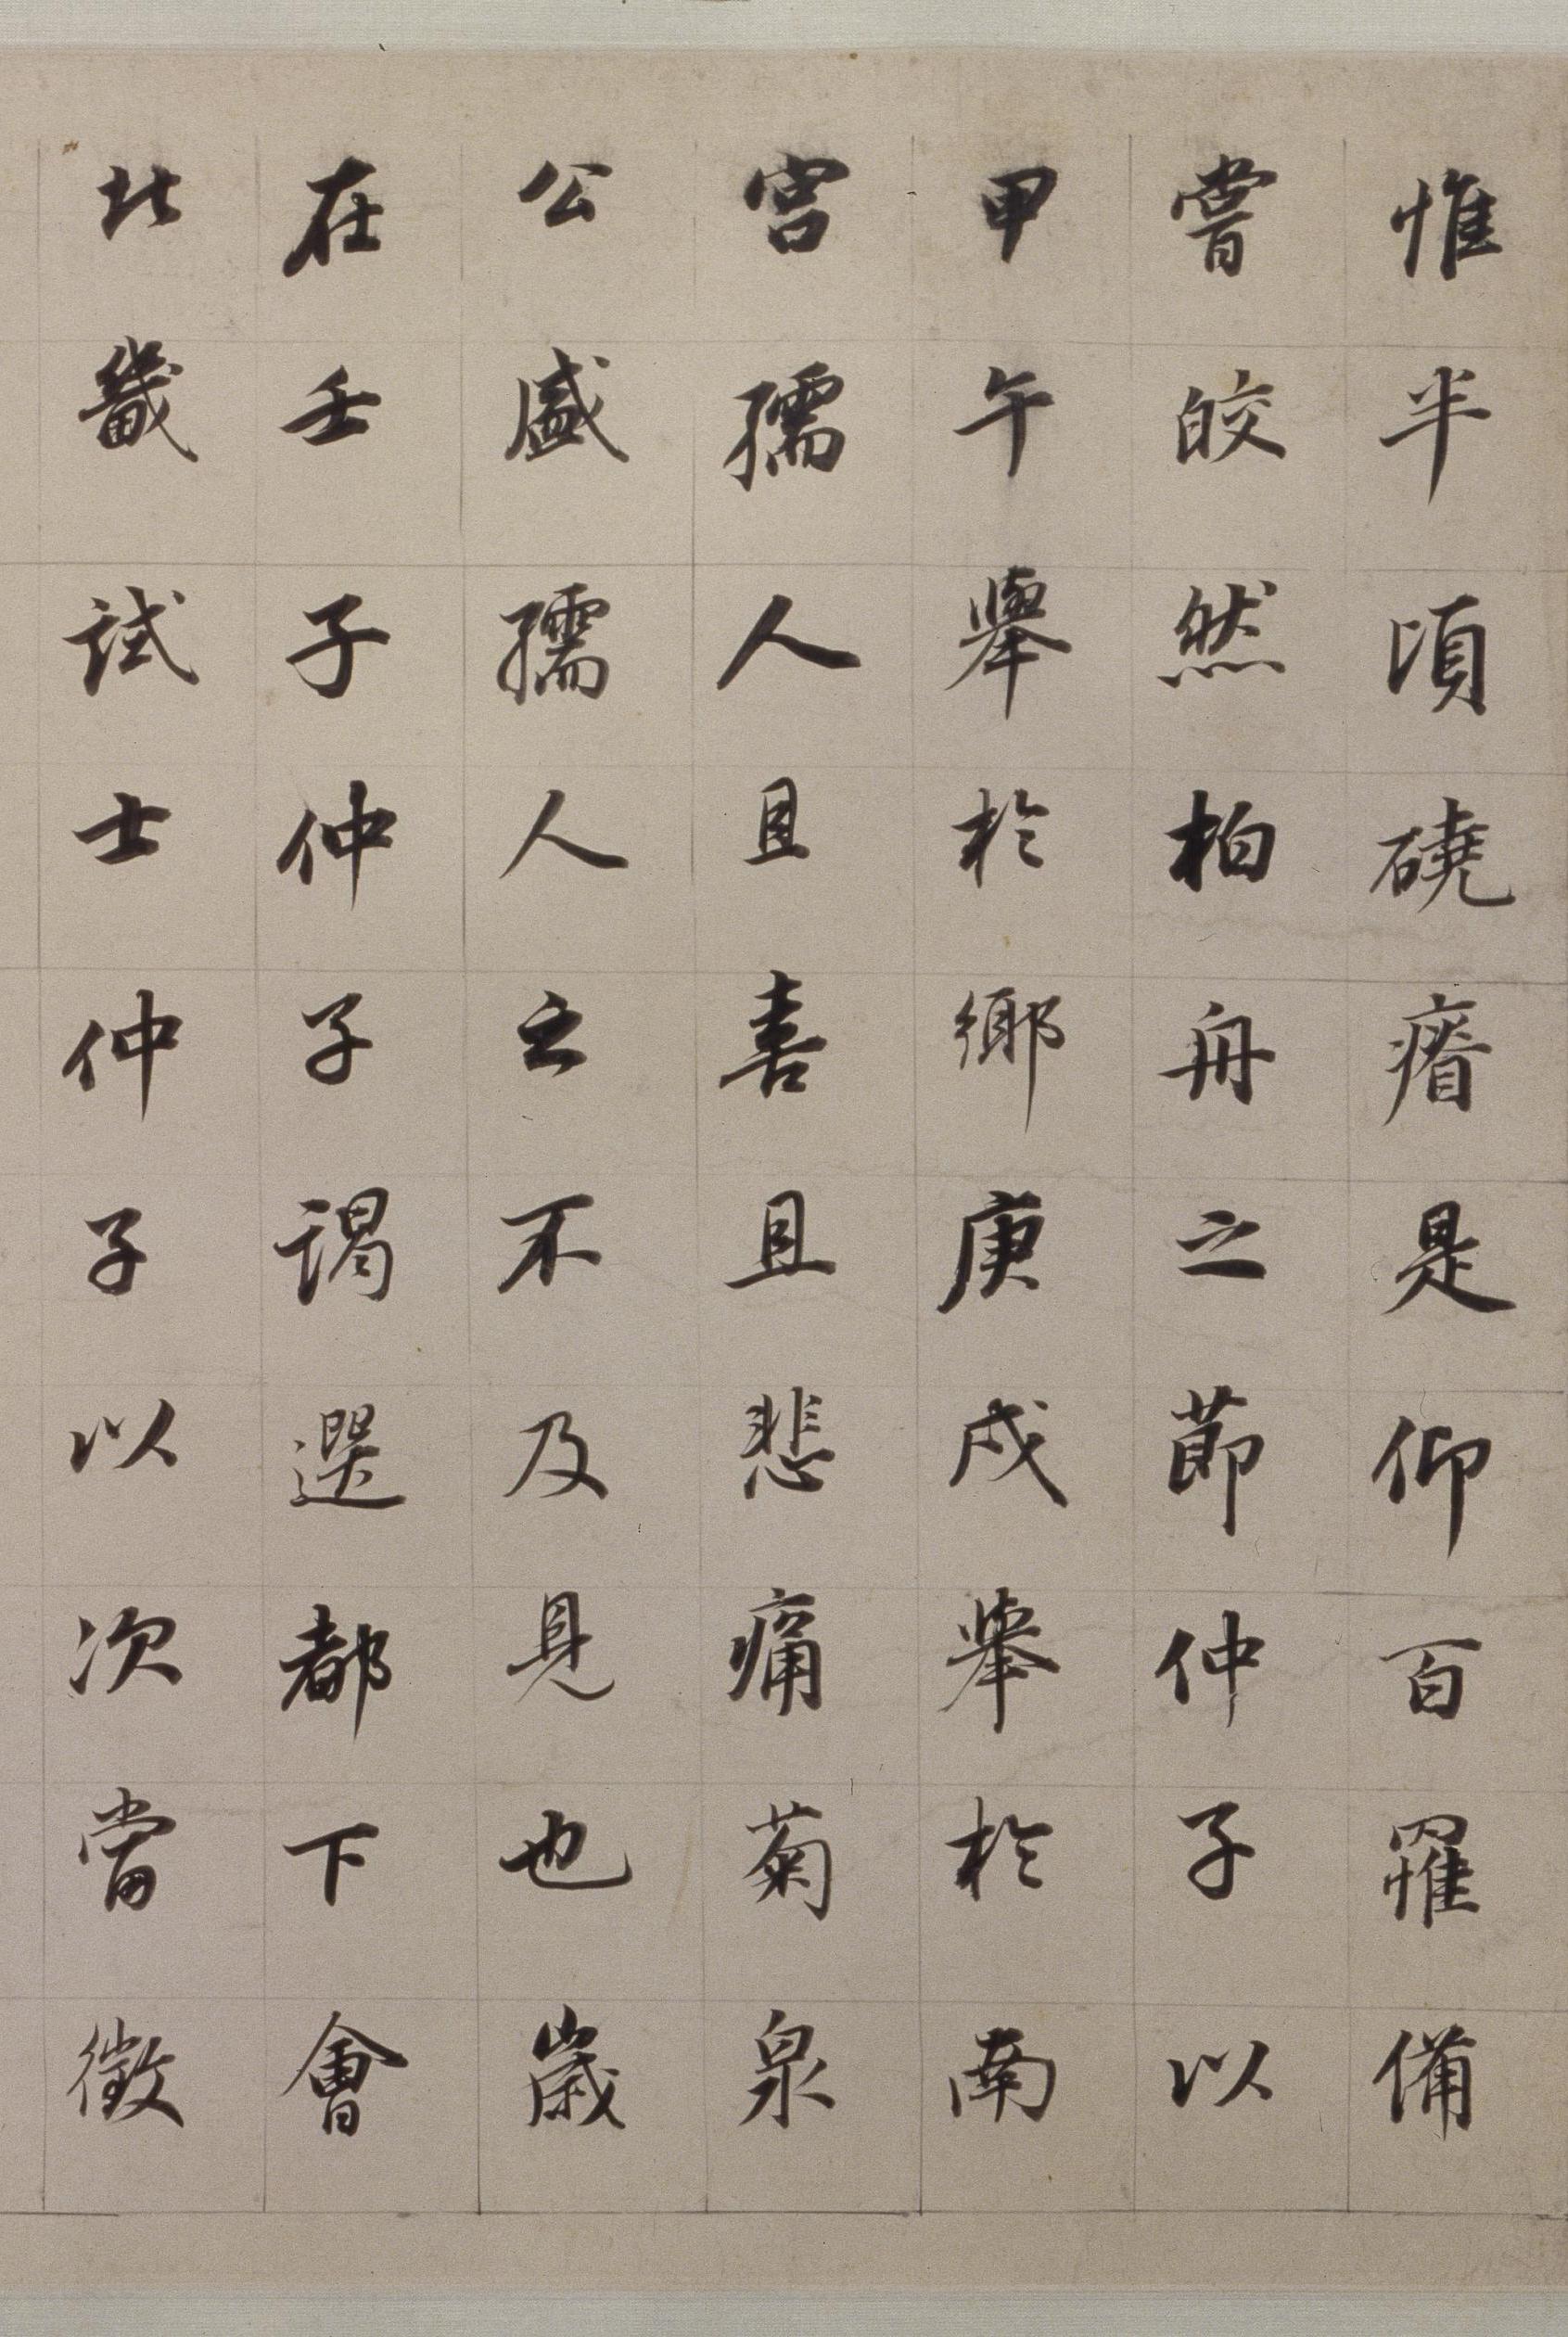 惟半頃磽瘠是仰百罹備
嘗皎然柏舟之節仲子以
甲午舉於鄉庚戌舉於南
宮孺人且喜且悲痛菊泉
公盛孺人之不及見也歲
在壬子仲子謁選都下會
北畿試士仲子以次當徵